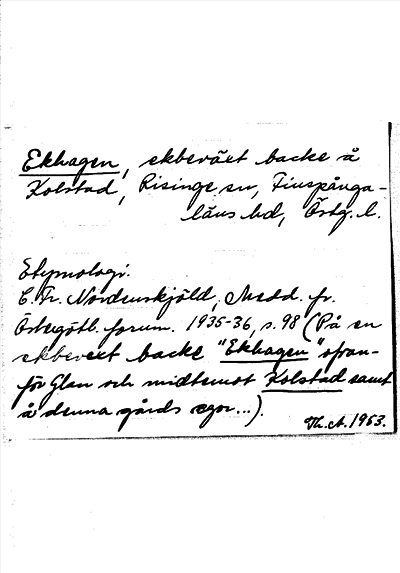 Ekhagen, ekbeväxt backe å
Kolstad, Risinge sn, Finspånga-
läns hd, Östg. l.
Etymologi.
C. Fr. Nordenskjöld, Medd. fr.
Östergötl. fornm. 1935-36, s. 98 (På en
ekbevext backe "Ekhagen" ofvan-
för Glan och midtemot Kolstad samt
å denna gårds egor...).
Th. A. 1953.